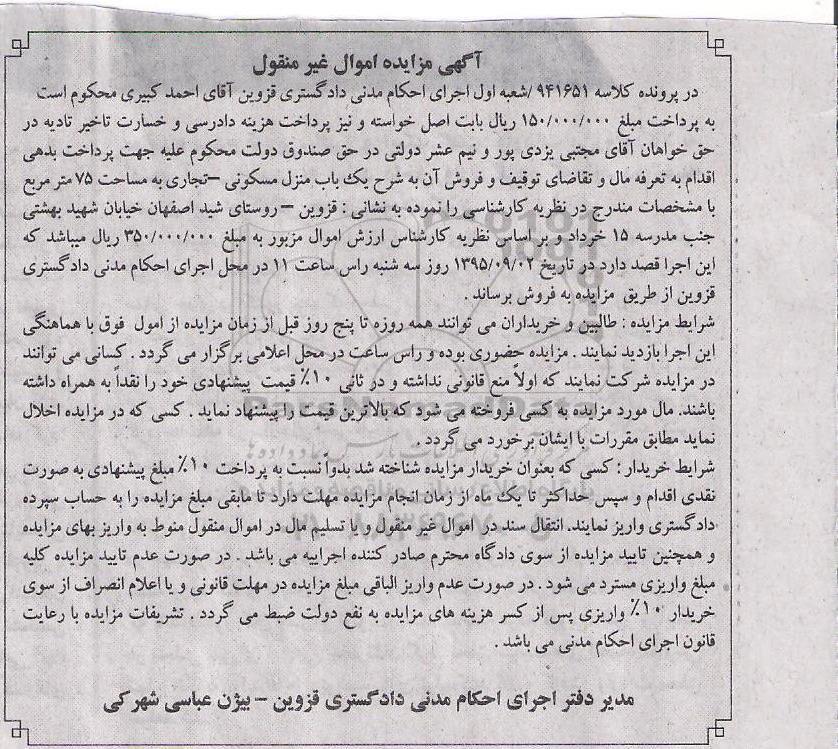 آگهی مزایده اموال غیر منقول
در پرونده کلاسه ۹۴۱۶۵۱ /شعبه اول اجرای احکام مدنی دادگستری قزوین آقای احمد کبیری محکوم است
به پرداخت مبلغ ۱۵۰/۰۰۰/۰۰۰ ریال بابت اصل خواسته و نیز پرداخت هزینه دادرسی و خسارت تاخیر تادیه در
حق خواهان آقای مجتبی یزدی پور و نیم عشر دولتی در حق صندوق دولت محکوم علیه جهت پرداخت بدهی
اقدام به تعرفه مال و تقاضای توقیف و فروش آن به شرح یک باب منزل مسکونی –تجاری به مساحت ۷۵ متر مربع
با مشخصات مندرج در نظریه کارشناسی را نموده به نشانی : قزوین – روستای شید اصفهان خیابان شهید بهشتی
جنب مدرسه ۱۵ خرداد و بر اساس نظریه کارشناس ارزش اموال مزبور به مبلغ ۳۵۰/۰۰۰/۰۰۰ ریال میباشد که
این اجرا قصد دارد در تاریخ ۱۳۹۵/۰۹/۰۲ روز سه شنبه راس ساعت ۱۱ در محل اجرای احکام مدنی دادگستری
قزوین از طریق مزایده به فروش برساند .
شرایط مزایده : طالبین و خریداران می توانند همه روزه تا پنج روز قبل از زمان مزایده از امول فوق با هماهنگی
این اجرا بازدید نمایند . مزایده حضوری بوده و راس ساعت در محل اعلامی برگزار می گردد . کسانی می توانند
در مزایده شرکت نمایند که اولاً منع قانونی نداشته و در ثانی ۱۰٪ قیمت پیشنهادی خود را نقداً به همراه داشته
باشند. مال مورد مزایده به کسی فروخته می شود که بالاترین قیمت را پیشنهاد نماید . کسی که در مزایده اخلال
نماید مطابق مقررات با ایشان برخورد می گردد .
شرایط خریدار : کسی که بعنوان خریدار مزایده شناخته شد بدواً نسبت به پرداخت ۱۰٪ مبلغ پیشنهادی به صورت
نقدی اقدام و سپس حداکثر تا یک ماه از زمان انجام مزایده مهلت دارد تا مابقی مبلغ مزایده را به حساب سپرده
دادگستری واریز نمایند. انتقال سند در اموال غیر منقول و یا تسلیم مال در اموال منقول منوط به واریز بهای مزایده
و همچنین تایید مزایده از سوی دادگاه محترم صادر کننده اجراییه می باشد . در صورت عدم تایید مزایده کلیه
مبلغ واریزی مسترد می شود . در صورت عدم واریز الباقی مبلغ مزایده در مهلت قانونی و یا اعلام انصراف از سوی
خریدار ۱۰٪ واریزی پس از کسر هزینه های مزایده به نفع دولت ضبط می گردد . تشریفات مزایده با رعایت
قانون اجرای احکام مدنی می باشد .
مدیر دفتر اجرای احکام مدنی دادگستری قزوین – بیژن عباسی شهرکی